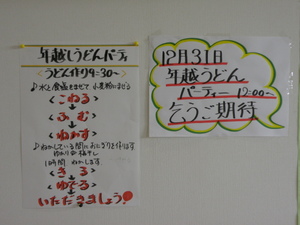 年越しうどんパーティ
<うどん作り9:30〜>
♪水と食塩をまぜて小麦粉にまぜる
<こねる>
<ふむ>
<ねかす>
♪ねかしている間におにぎりを作ります
1時間 ねかします
<きる>
<ゆでる>
いただきましょう
12月31日
年越うどん
パーティー 12:00〜
乞うご期待